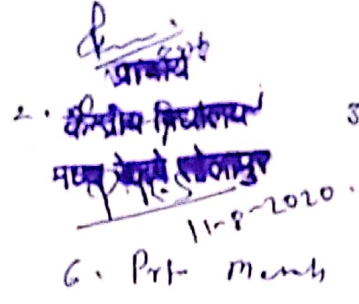 प्राचार्य
2. केन्द्रीय विद्यालय 3
मध्य रेलवे सोलापुर
11-8-2020.
6. Prf-